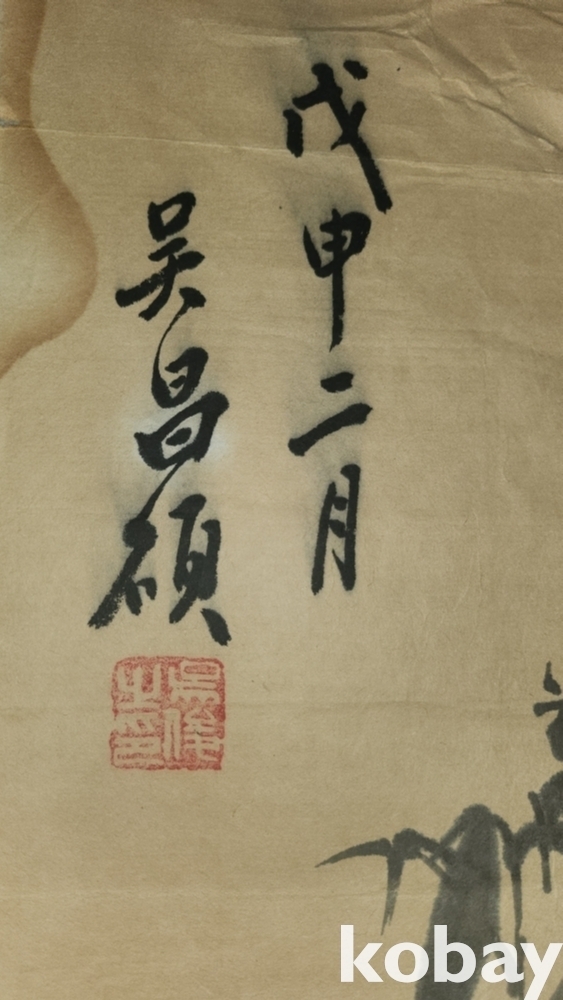 戊申二月
吴昌硕
吳俊之印
kobay